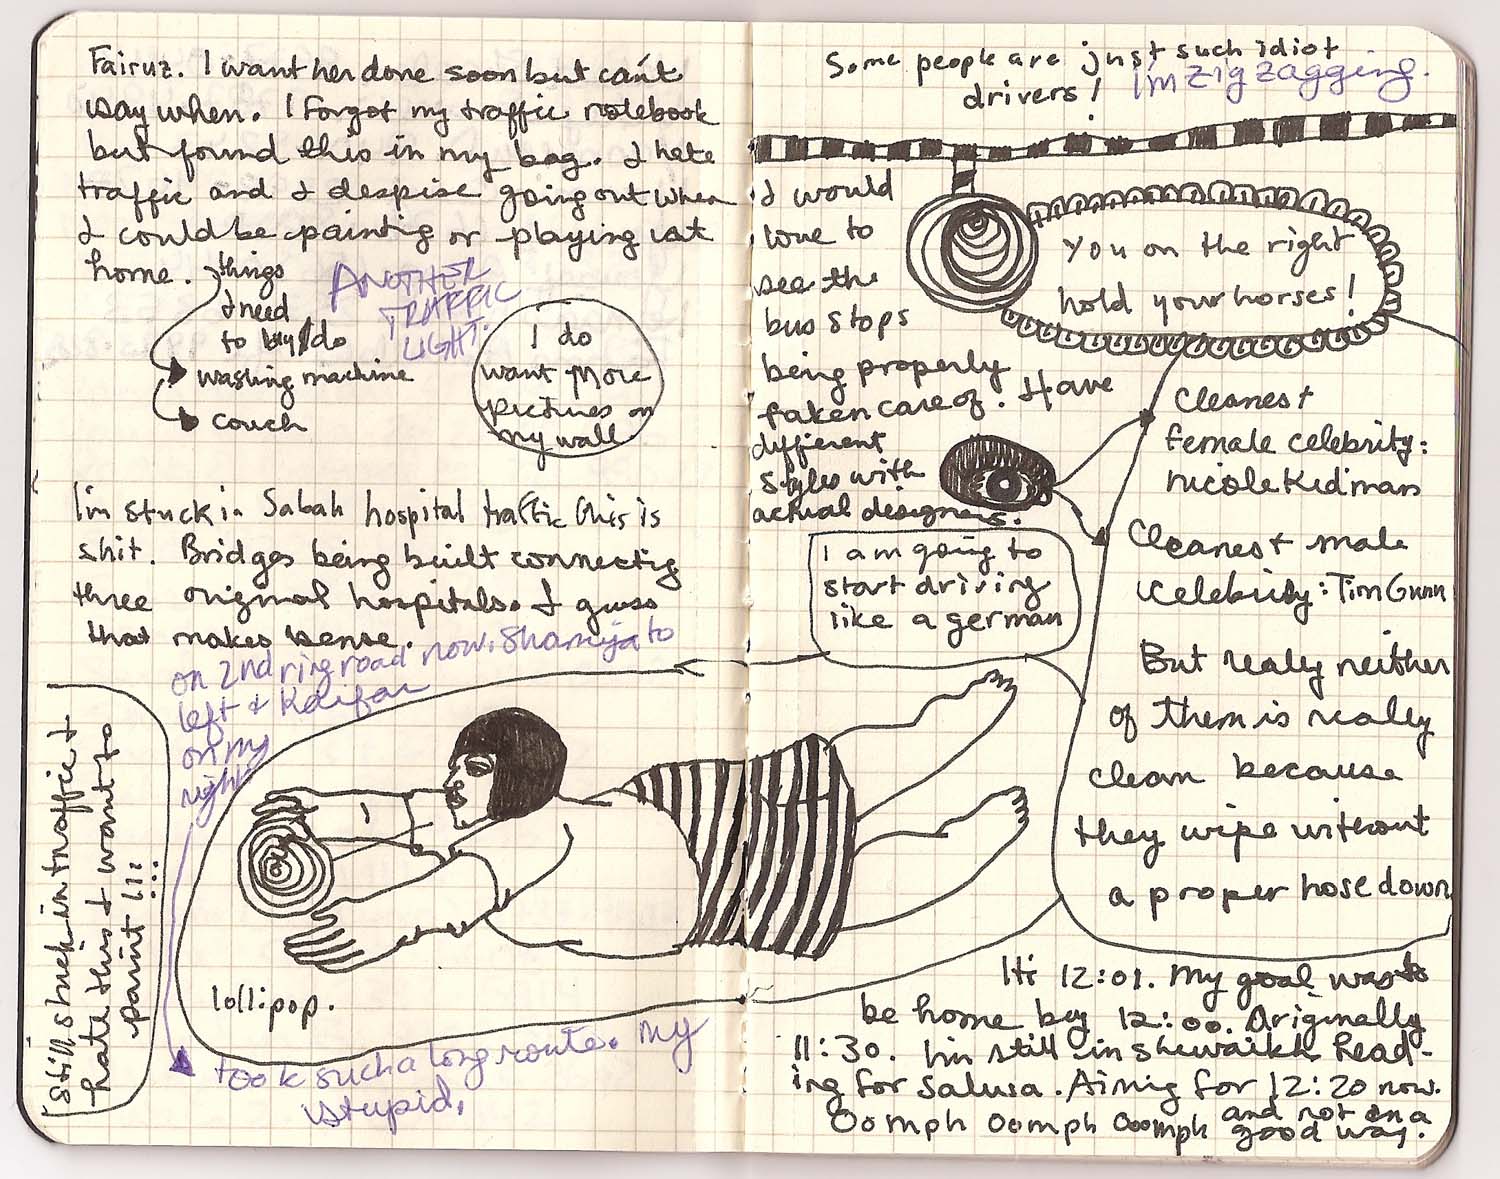 Fairuz. I want her done soon but can't
say when. I forgot my traffic notebook
but found this in my bag. I hate
traffic and I despise going out when
I could be painting or playing at
home.
things
I need
to buy/do
washing machine
couch
ANOTHER
TRAFFIC
LIGHT.
I do
want more
pictures on
my wall
I'm stuck in Sabah hospital traffic this is
shit. Bridges being built connectig
three original hospitals. I guess
that makes sense.
on 2nd ring road now. Shamiya to
left & Kaifan
on my
right
still stuck in traffic I
hate this I want to
paint!!!...
lollipop.
took such a long route. my
stupid.
Some people are just such idiot
drivers!
I'm zig zagging.
I would
love to
see the
bus stops
being properly
taken care of. Have
different
styles with
actual designers.
You on the right
hold your horses!
Cleanest
female celebrity:
Nicole Kidman
Cleanest male
celebrity: Tim Gunn
But really neither
of them is really
clean because
they wipe without
a proper hose down
I am going to
start driving
like a german
Hi 12:01. My goal was to
be home by 12:00. Originally
11:30. I'm still in shuwaikh head-
ing for Salwa. Aiming for 12:20 now.
Oomph Oomph Ooomph and not in a
good way.